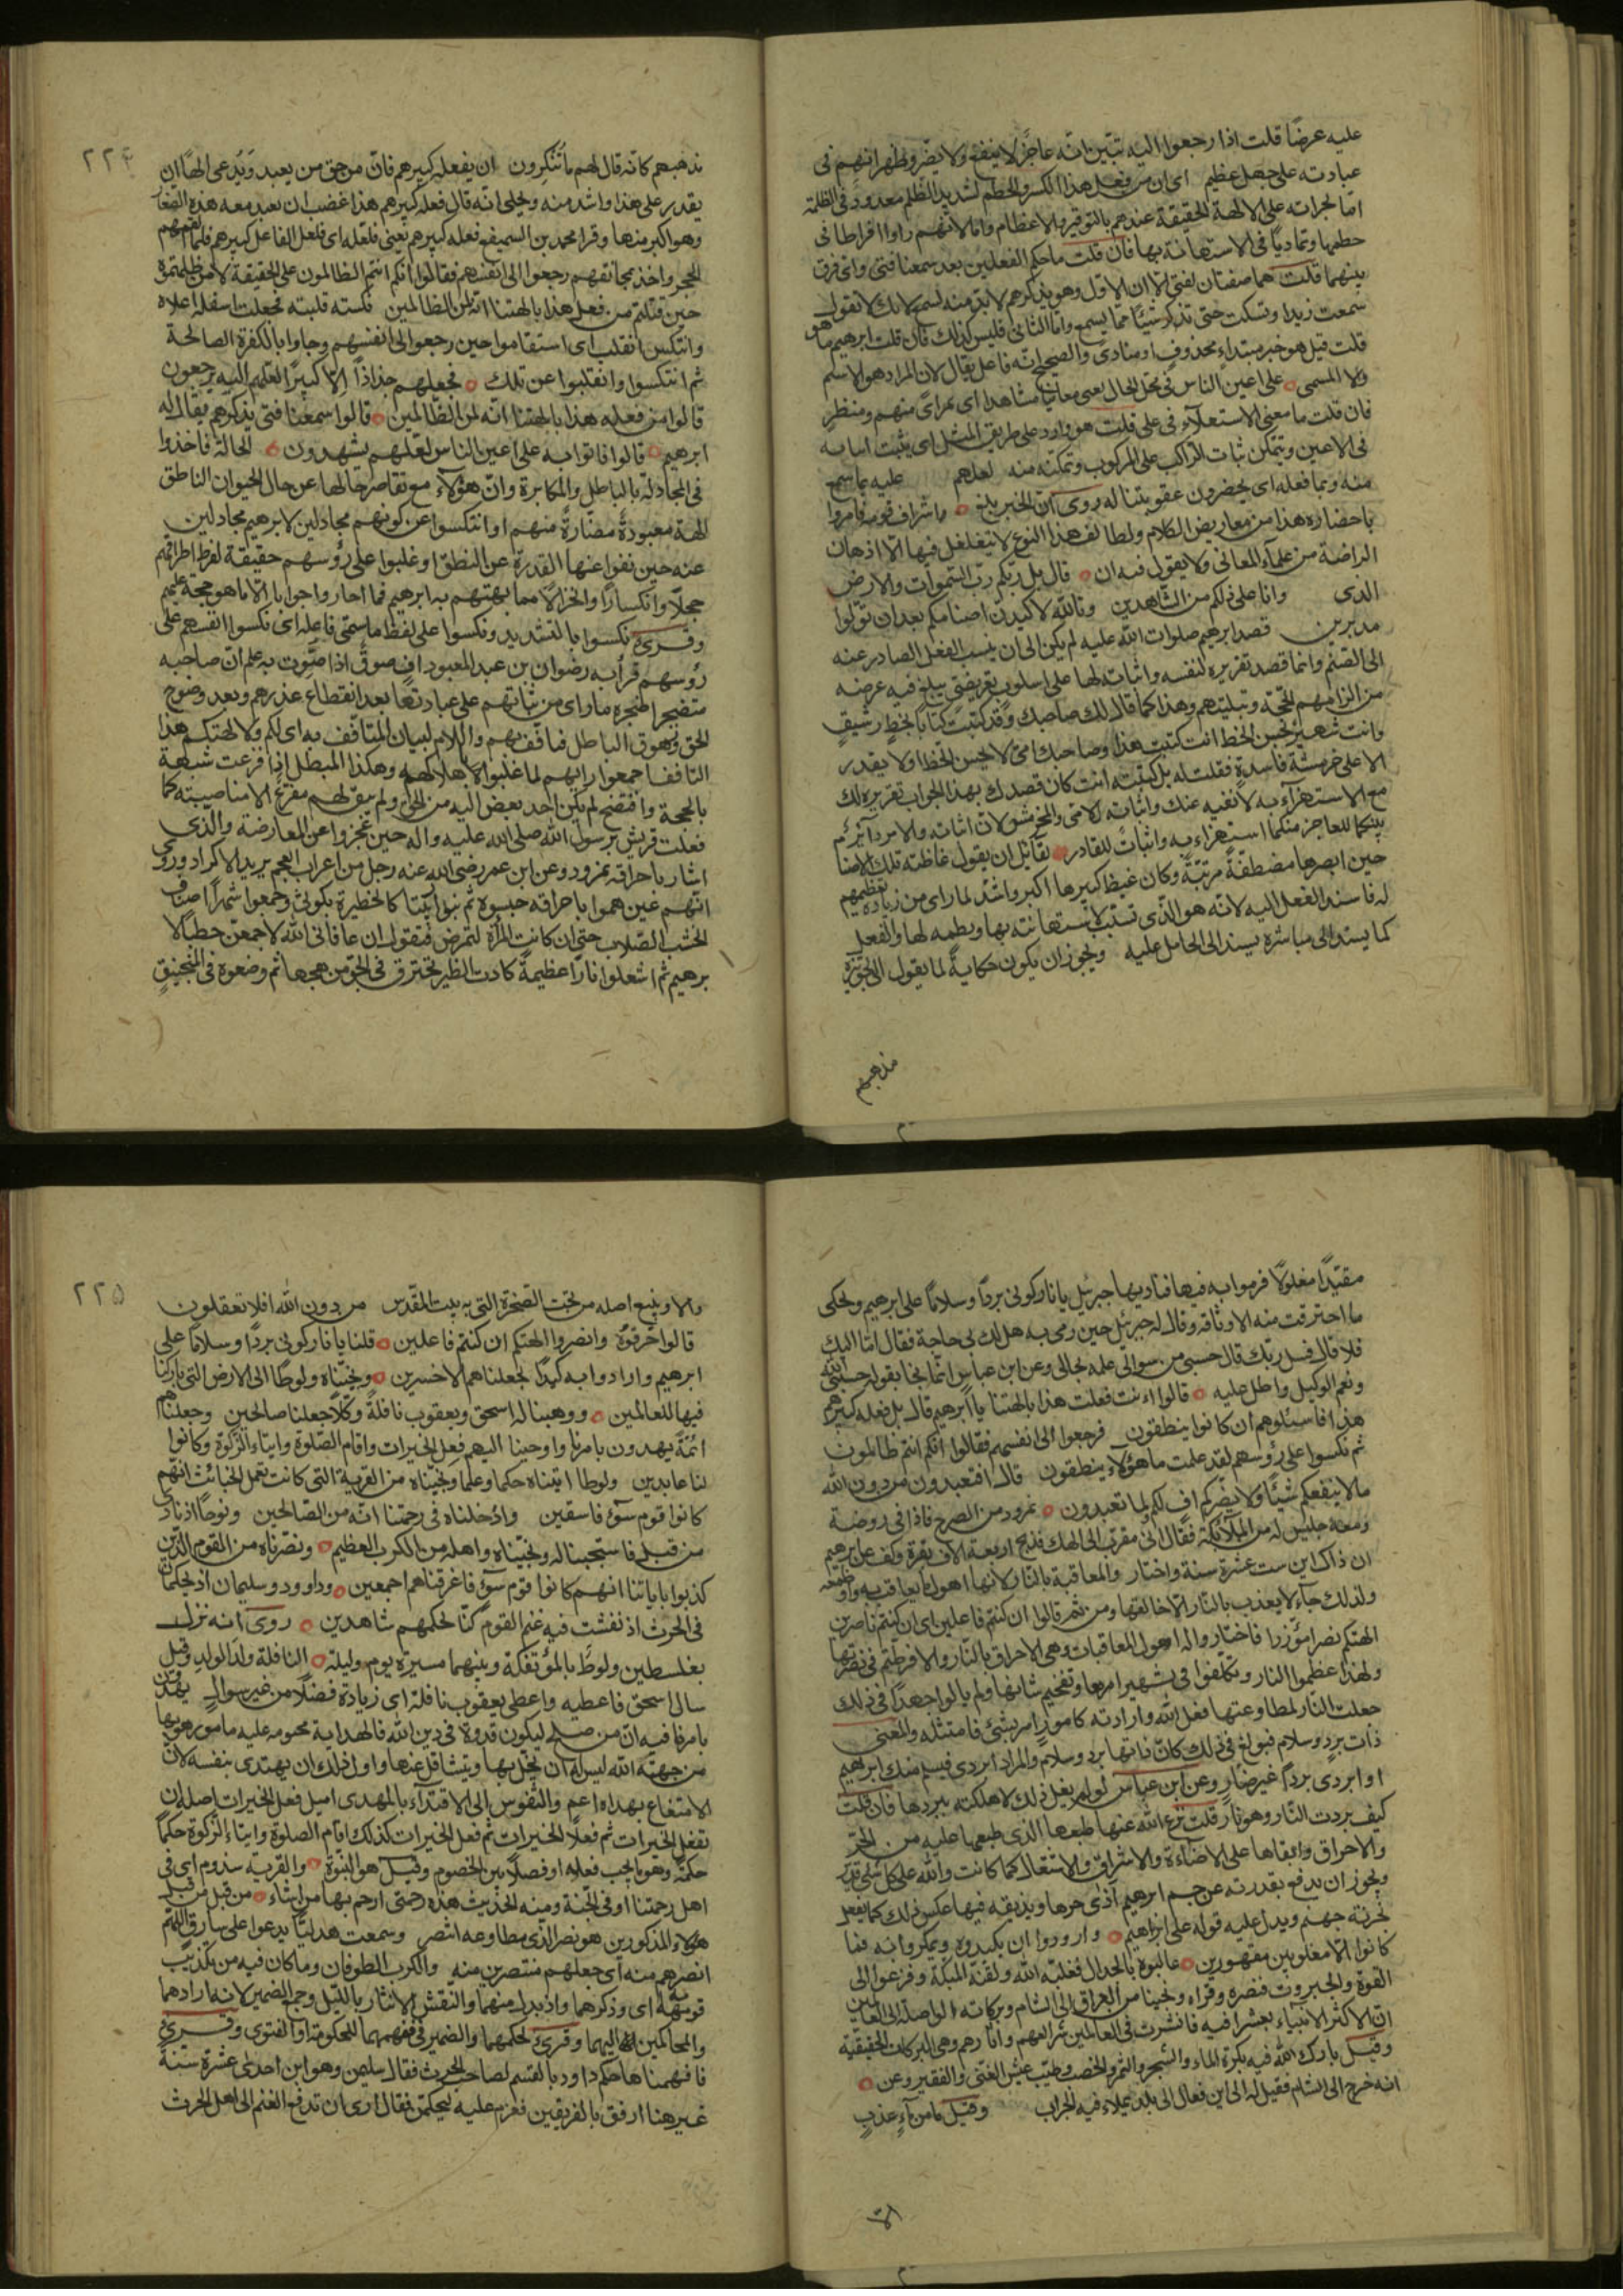 عليه عرضًا قلت اذا رجعوا اليه تبيّن انّه عاجز لا ينفع ولا يضر وظهر انهم فى
عبادته على جهل عظيم اى ان من فعل هذا الكسر والحطم لشديد الظلم معدود فى الظلمة
امّا لجراته على الالهة الحقيقة عندهم بالتوقير والاعظام وامّا لانهم راوا افراطا فى
حطمها وتماديًا فى الاستهانة بها فان قلت ما حكم الفعلين بعد سمعنا فتى واىّ فرق
بينهما قلت هما صفتان لفتى الا ان الاول وهو يذكرهم لا بدّ منه لسمع لانك لا تقول
سمعت زيدا وتسكت حتى تذكر شيئًا ممّا يسمع وامّا الثانى فليس كذلك فان قلت ابرهيم ما هو
قلت قيل هو خبر مبتداء محذوف او منادى والصحيح انّه فاعل يقال لان المراد هو الاسم
ولا المسمى على اعين الناس فى محل الحال بمعنى معاينا مشاهدا اى بمراى منهم ومنظر
فان قلت ما معنى الاستعلاء فى على قلت هو وارد على طريق المثل اى يثبت اتيانه
فى الاعين ويتمكن ثبات الراكب على المركوب وتمكنه منه لعلهم عليه بما سمع
منه وبما فعله اى يحضرون عقوبتنا له روى انّ الخبر بلغ ما شراف قومه فامروا
باحضاره هذا من معاريض الكلام ولطائف هذا النوع لا يتغلغل فيها الّا اذهان
الراضة من علماء المعانى ولا يقول فيه ان قال بل ربّكم ربّ السّموات والارض
الذى وانا على ذلكم من الشّاهدين وتاللّه لاكيدنّ اصنامكم بعد ان تولّوا
مدبرين قصد ابرهيم صلوات اللّه عليه لم يكن الى ان ينسب الفعل الصادر عنه
الى الصّنم وانما قصد تقريره لنفسه واثباته لها على اسلوب تعريضىّ يبلغ فيه غرضه
من الزامهم الحجّة وتبكيتهم وهذا كما قال لك صاحبك وقد كتبت كتابًا بخطٍ رشيقٍ
وانت شهير بحسن الخط انت كتبت هذا وصاحبك امىّ لا يحسن الخط ولا يقدر
الا على خرمشة فاسدةٍ فقلت له بل كتبته انت كان قصدك بهذا الجواب تقريره لك
مع الاستهزآء به لا نفيه عنك واثباته للامّى والمخرمش لان اثباته والامر دائر
بينكما للعاجز منكما استهزاء به واثباتٌ للقادر لقائل ان يقول غاظته تلك الاصنا
حين ابصرها مصطفةً مرتبةً وكان غيظ كبيرها اكبر واشدّ لما راى من زيادة تعظيمهم
له فاسند الفعل اليه لانّه هو الّذى تسبّب لاستهانته بها وحطمه لها والفعل
كما يسند الى مباشره يسند الى الحامل عليه ويجوز ان يكون حكايةً لما يقول الى تجويزه
مذهبهم
٢٢٤
مذهبهم كانّه قال لهم ما تُنكِرون ان يفعله كبيرهم فانّ من حق من يعبد ويُدعى الهًا ان
يقدر على هذا واشد منه ويحكى انّه قال فعله كبيرهم هذا غضب ان يعبد معه هذه الصّغا
وهو اكبر منها وقرا محمد بن السميفع فعله كبيرهم يعنى فلعلّه اى فلعلّ الفاعل كبيرهم فلمّا القمهم
الحجر واخذ بمخانقهم رجعوا الى انفسهم فقالوا انّكم انتم الظالمون على الحقيقة لا من ظلمتموه
حين قلتم من فعل هذا بالهتنا انّه لمن الظالمين نكسته قلبته فجعلت اسفله اعلاه
وانتكس انقلب اى استقاموا حين رجعوا الى انفسهم وجاوا بالفكرة الصالحة
ثم انتكسوا وانقلبوا عن تلك فجعلهم جذاذًا الّا كبيرًا لعلّهم اليه يرجعون
قالوا من فعل هذا بالهتنا انّه لمن الظالمين قالوا سمعنا فتى يذكرهم يقال له
ابرهيم قالوا فاتوا به على اعين الناس لعلّهم يشهدون الحالة فاخذوا
فى المجادلة بالباطل والمكابرة وانّ هؤلاء مع تقاصر حالها عن حال الحيوان الناطق
الهة معبودةً مضّارةً منهم او انتكسوا عن كونهم مجادلين لابرهيم مجادلين
عنه حين نفوا عنها القدرة عن النطق او غلبوا على رؤسهم حقيقة لفرط اطراقهم
خجلًا وانكسارًا وانخزالًا مما بهتهم به ابرهيم فما احاروا جوابا الّا ما هو حجة عليهم
وقرىء نكسوا بالتشديد ونكسوا على لفظ ما سمّى فاعله اى نكسوا انفسهم على
رؤسهم قرأ به رضوان بن عبد المعبود اف صوتٌ اذا صوّت به علم انّ صاحبه
متضجر اضجره ما راى من ثباتهم على عبادتها بعد انقطاع عذرهم وبعد وضوح
الحق وزهوق الباطل فتاقّف بهم واللام لبيان المتاقف به اى لكم ولالهتكم هذا
التاقف اجمعوا رايهم لما غلبوا لاهلاكه وهكذا المبطل اذا قرعت شبهة
بالحجة وافتضح لم يكن احد ابغض اليه من المحق ولم يبق لهم مفزع الا مناصبته كما
فعلت قريش برسول اللّه صلى اللّه عليه واله حين عجزوا عن المعارضة والّذى
اشار باحراقه نمرود وعن ابن عمر رضى اللّه عنه رجل من اعراب العجم يريد الاكراد وروى
انّهم حين هموا باحراقه حبسوه ثم بنوا بيتا كالحظيرة بكوثى وجمعوا شهرًا اصناف
الخشب الصّلاب حتى ان كانت المرأة لتمرض فتقول ان عافانى اللّه لاجمعنّ حطبًا لا
برهيم ثم اشعلوا نارًا عظيمةً كادت الطير تحترق فى الجوّ من وهجها ثم وضعوه فى المنجنيق
مقيّدًا مغلولًا فرموا به فيها فناديها جبرئيل يا نار كونى بردًا وسلامًا على ابرهيم ويحكى
ما احترقت منه الا وثاقه وقال له جبرئيل حين رمى به هل لك بى حاجة فقال امّا اليك
فلا قال فسل ربّك قال حسبى من سوالى علمه بحالى وعن ابن عباس انما نجا بقوله حسبى اللّه
ونعم الوكيل واطل عليه قالوا اءنت فعلت هذا بالهتنا يا ابرهيم قال بل فعله كبيرهم
هذا فاسئلوهم ان كانوا ينطقون فرجعوا الى انفسهم فقالوا انكم انتم ظالمون
ثم نكسوا على رؤسهم لقد علمت ما هؤلاء ينطقون قال افتعبدون من دون اللّه
مالا ينفعكم شيئًا ولا يضرّكم اف لكم ولما تعبدون نمرود من الصرح فاذا فى روضة
ومعه جليس له من الملآئكة فقال انى مقرّب الى الهك فذبح اربعة الاف بقرة وكف عن ابرهيم
ان ذاك ابن ست عشرة سنة واختار والمعاقبة بالنار لانها اهول ما يعاقب به وافظعه
ولذلك جآء لا يعذب بالنّار الّا خالقها ومن ثمّ قالوا ان كنتم فاعلين اى ان كنتم ناصرين
الهتكم نصرا مؤزّرا فاختاروا له اهول المعاقبات وهى الاحراق بالنّار والا فرطتم فى نصرتها
ولهذا عظموا النار وتكلّفوا فى تشهير امرها وتفخيم شانها ولم يالوا جهدًا فى ذلك
جعلت النّار لمطاوعتها فعل اللّه وارادته كامورٍ امر بشىء فامتثله والمعنى
ذات بردٍ وسلامٍ فبولغ فى ذلك كانّ ذاتها برد وسلام والمراد ابردى فيسلم منك ابراهيم
او ابردى بردًا غير ضارٍ وعن ابن عباس لو لم يقل ذلك لاهلكته ببردها فان قلت
كيف بردت النّار وهو نارٌ قلت نزع اللّه عنها طبعها الذى طبعها عليه من الحرّ
والاحراق وابقاها على الاضاءة والاشراق والاشتعال كما كانت واللّه على كل شىء قدير
ويجوز ان يدفع بقدرته عن جسم ابرهيم اذى حرها ويذيقه فيها عكس ذلك كما يفعل
بخزنة جهنم ويدلّ عليه قوله على ابراهيم وارادوا ان يكيدوه ويمكروا به فما
كانوا الّا مغلوبين مقهورين غالبوه بالجدال فغلّبه اللّه ولقنة المبكّت وفزعوا الى
القوة والجبروت فنصره وقواه ونجينا من العراق الى الشام وبركاته الواصلة الى العالمين
انّ اكثر الانبياء بعثوا فيه فانتشرت فى العالمين شرائعهم واثارهم وهى البركات الحقيقية
وقيل بارك اللّه فيه بكثرة الماء والشجر والثمر والخصب وطيب عيش الغنى والفقير وعن
انه خرج الى الشام فقيل له الى اين فقال الى بلد يملاء فيه الجراب وقيل ما من مآءٍ عذبٍ
الّا
٢٢٥
والّا وينبع اصله من تحت الصّخرة التى ببيت المقدس من دون اللّه افلا تعقلون
قالوا حرّقوه وانصروا الهتكم ان كنتم فاعلين قلنا يا نار كونى بردًا وسلامًا على
ابرهيم وارادوا به كيدًا فجعلناهم الاخسرين ونجّيناه ولوطًا الى الارض التى باركنا
فيها للعالمين ووهبنا له اسحق ويعقوب نافلةً وكلًّا جعلنا صالحين وجعلناهم
ائمّةً يهدون بامرنا واوحينا اليهم فعل الخيرات واقام الصّلوة وايتاء الزّكوة وكانوا
لنا عابدين ولوطا اتيناه حكما وعلما ونجّيناه من القرية التى كانت تعمل الخبائث انّهم
كانوا قوم سوء فاسقين وادخلناه فى رحمتنا انّه من الصّالحين ونوحًا اذ نادى
من قبل فاستجبنا له ونجّيناه واهله من الكرب العظيم ونصرناه من القوم الّذين
كذبوا باياتنا انهم كانوا قوم سوء فاغرقناهم اجمعين وداوود وسليمان اذ يحكمان
فى الحرث اذ نفشت فيه غنم القوم وكنّا لحكمهم شاهدين روى انه نزل
بفلسطين ولوط بالمؤتفكة وبينهما مسيرة يوم وليلة النافلة ولد الولد وقيل
سال اسحق فاعطيه واعطى يعقوب نافلة اى زيادة فضلًا من غير سوال يهدون
بامرنا فيه انّ من صلح ليكون قدوة فى دين اللّه فالهداية محتومه عليه مامور هو بها
من جهة اللّه ليس له ان يخلّ بها ويتثاقل عنها واول ذلك ان يهتدى بنفسه لانّ
الانتفاع بهداه اعم والنّفوس الى الاقتدآء بالمهدى اميل فعل الخيرات اصله ان
تفعل الخيرات ثم فعلًا الخيرات ثم فعل الخيرات كذلك اقام الصلوة وايتاء الزّكوة حكمًا
حكمة وهو ما يجب فعله او فصلًا بين الخصوم وقيل هو النبوّة والقرية سدوم اى فى
اهل رحمتنا او فى الجنّة ومنه الحديث هذه رحمتى ارحم بها من اشاء من قبل من قبل
هؤلاء المذكورين هو نصر الذى مطاوعه انتصر وسمعت هذليًّا يدعوا على سارق اللّهمّ
انصرهم منه اى اجعلهم منتصرين منه والكرب الطوفان وما كان فيه من تكذيب
قومه اى وذكرهما واذ بدل منهما والنّفش الانتشار بالليّل وجمع الضمير لانه ارادهما
والمحاكمين اليهما وقرىء لحكمهما والضمير فى ففهمها للحكومة او الفتوى وقرىء
فافهمناها حكم داود بالغنم لصاحب الحرث فقال سليمن وهو ابن احدى عشرة سنةً
غير هذا ارفق بالفريقين فعزم عليه ليحكمنّ فقال ارى ان تدفع الغنم الى اهل الحرث